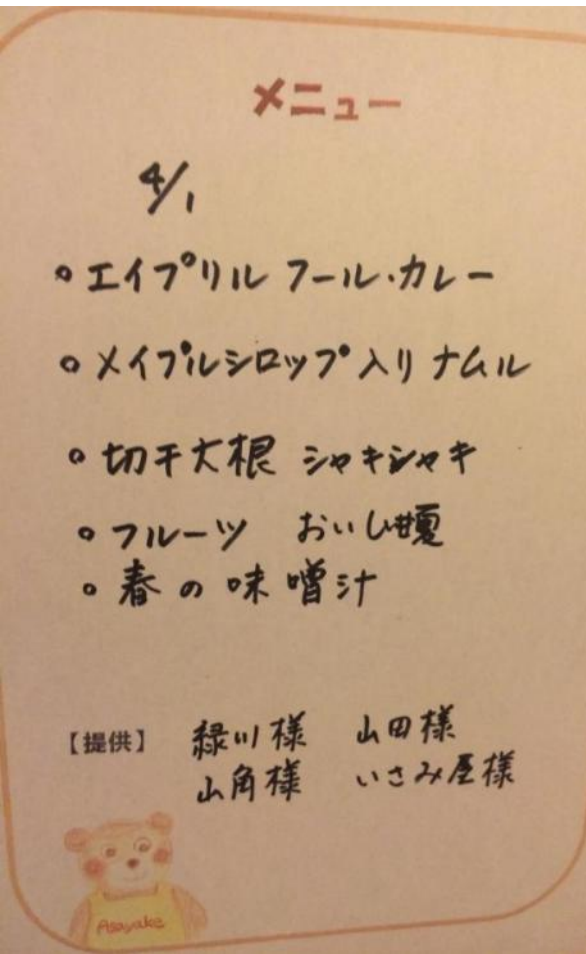 メニュー
4/1
・エイプリル フール・カレー
・メイプルシロップ入り ナムル
・切干大根 シャキシャキ
・フルーツ おいし甘夏
・春の味噌汁
【提供】 緑川様 山田様
山角様 いさみ屋様
Asayake